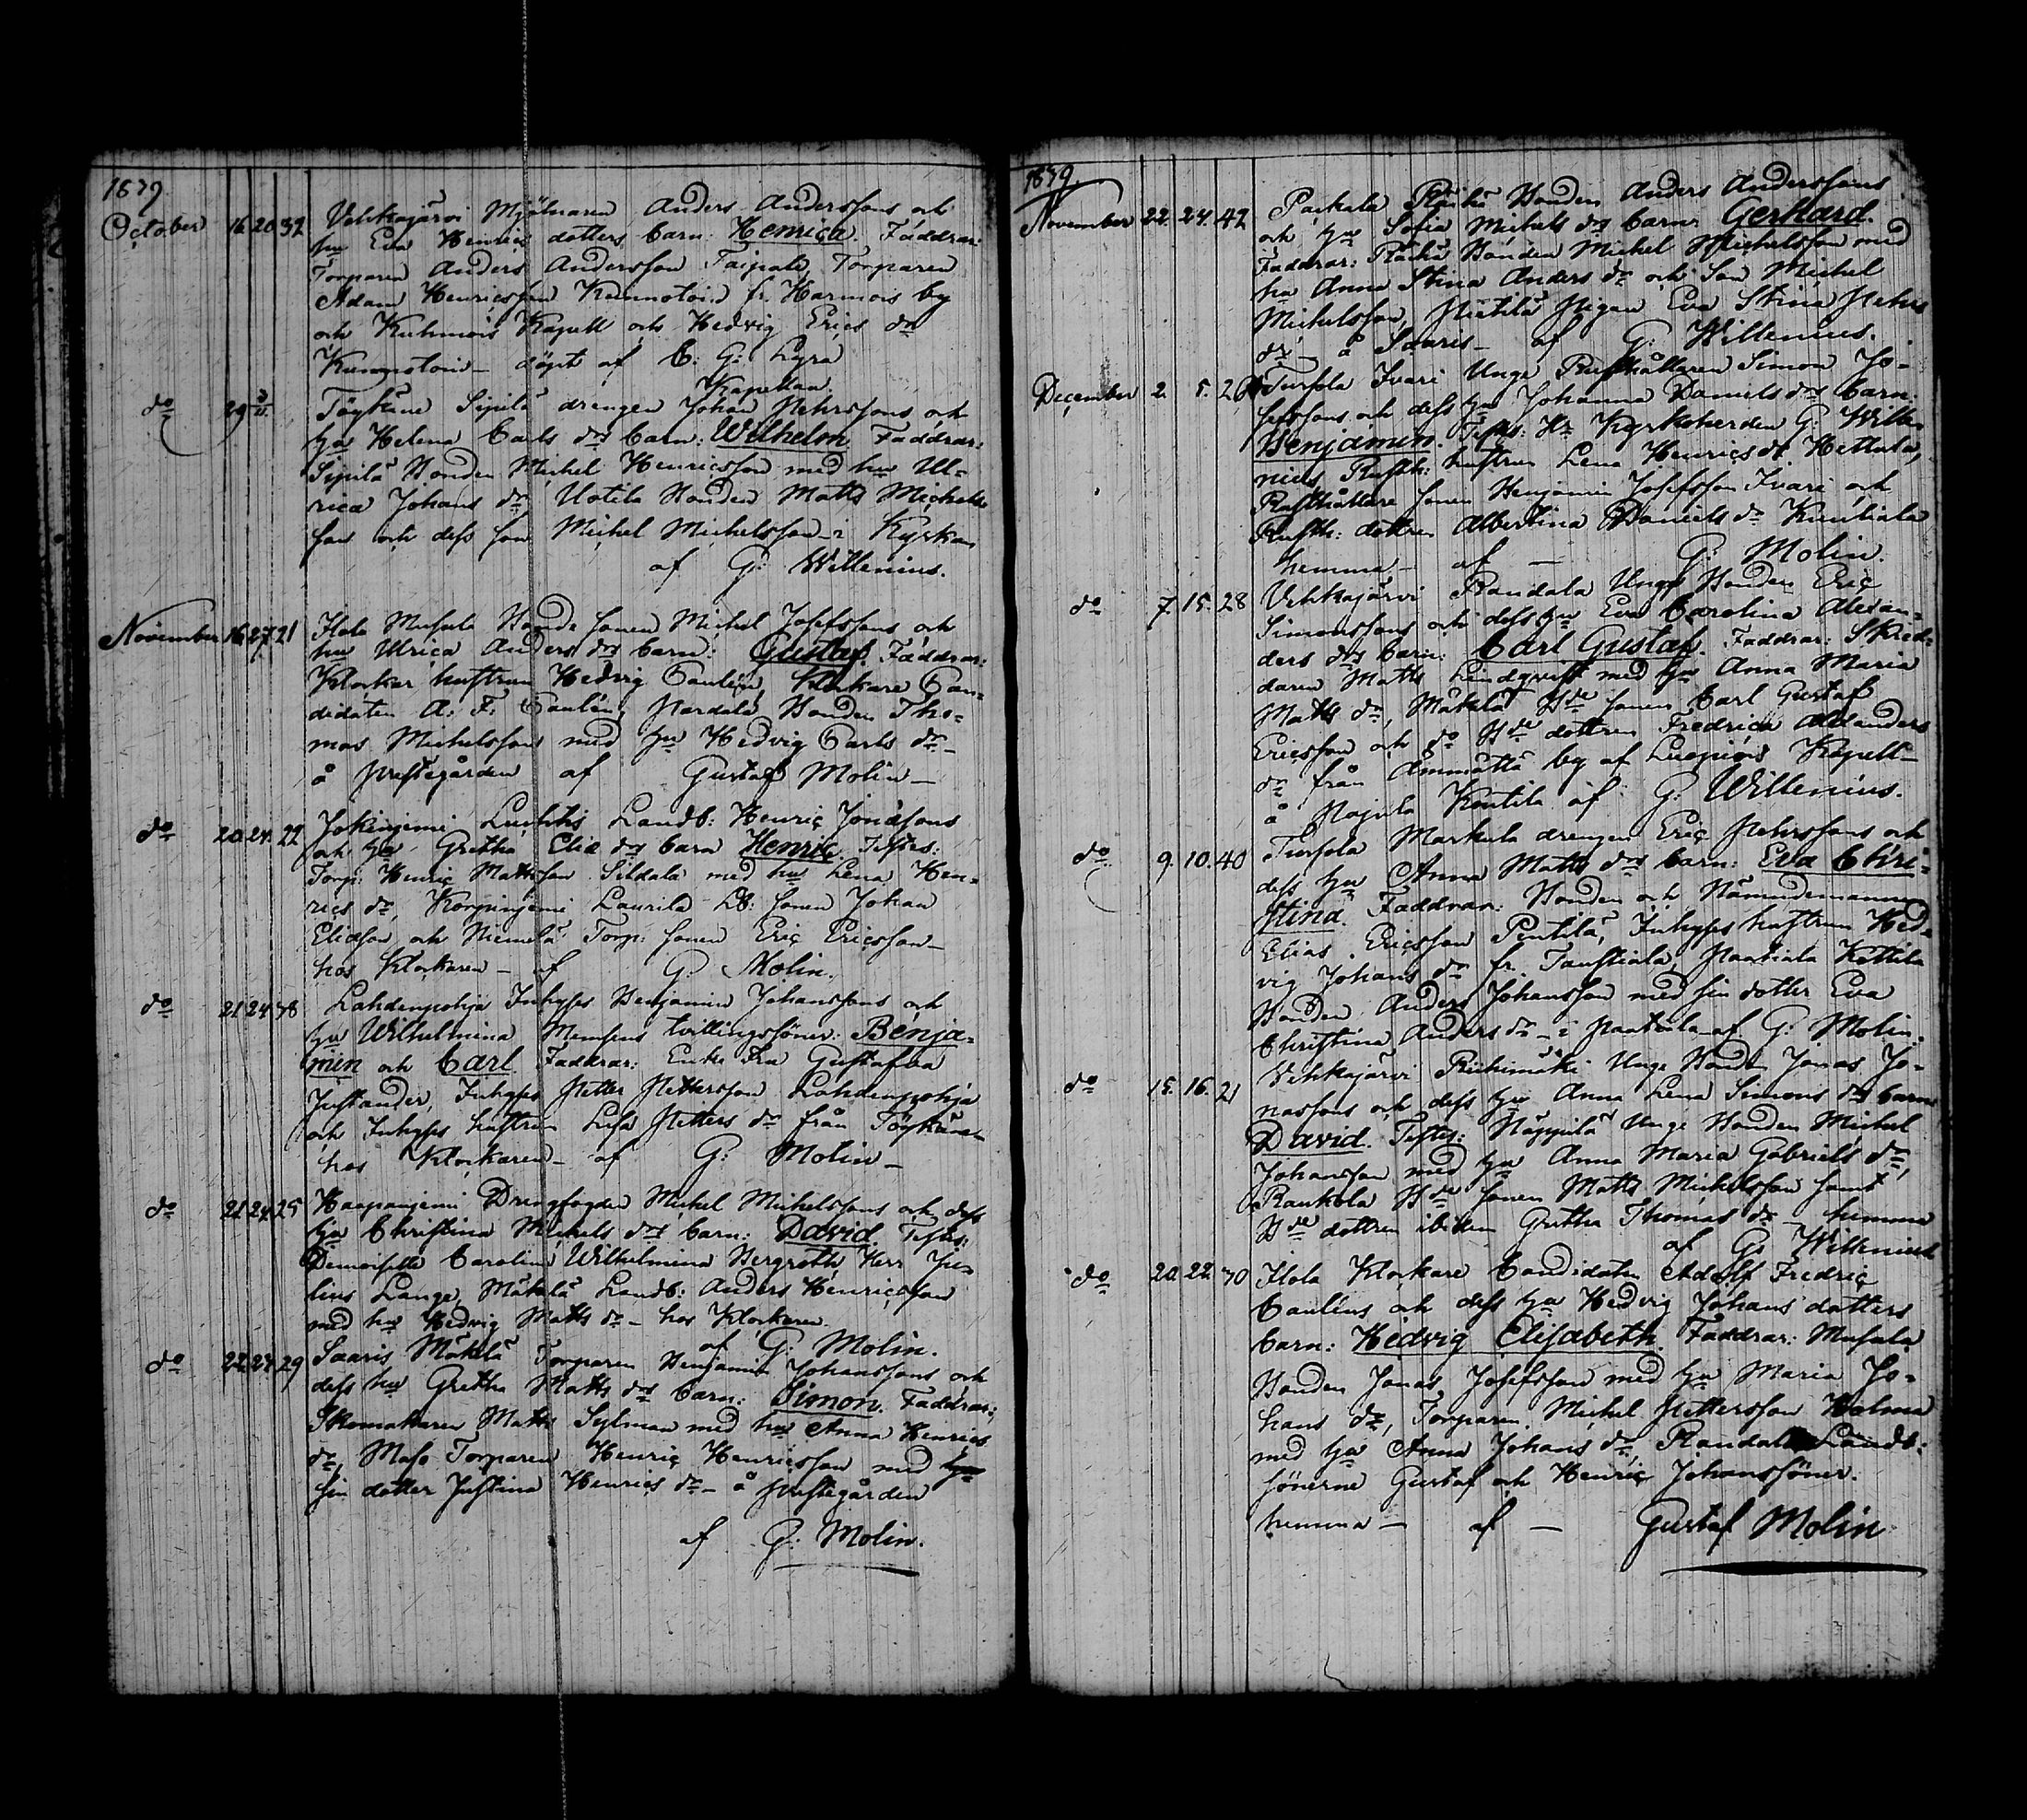 1839.
October 16 20 32 Vehkajärvi Mjölnaren Anders Anderssons och
hu Eva Henrics dotters barn: Henrica. Faddrar:
Torparen Anders Andersson Taipale, Torparen
Adam Henricsson fr. Harmois by
och Kuhmois Kapell och Hedvig Erics dr
döpt af C: G: Lyra
Kapellan.
do 29 3/11 Töykäne Sipilä drengen Johan Pehrssons och
hu Helena Carls drs barn: Wilhelm Faddrar:
Sipilä Bonden Michel Henricsson med hu Ul-
rica Johans dr, Uotila Bonden Matts Michels
son och dess son Michel Michelsson i Kyrkan
af G: Willenius.
November 16 27 21 Ilola Musula Bonde sonen Michel Josefssons och
hu Ulrica Anders drs barn: Gustaf. Faddrar:
Klockar hustrun Hedvig Caulén, Klockare Can-
didaten A: F: Caulén, Bonden Tho-
mas Michelsson med hu Hedvig Carls dr
å prestegården af Gustaf Molin
do 20 24 22 Jokinjemi Landb: Henric Jonassons
och hu Gretha Eliæ drs barn Henric Testes:
Torp: Henric Mattsson Sildala med hu Lena Hen-
rics dr, Korpinjemi Laurila Lb: sonen Johan
Eliasson och Niemelä Torp: sonen Eric Ericsson
hos Klockaren af G: Molin.
do 21 24 38 Lahdenpohja Inhyses Benjamin Johanssons och
hu Wilhelmina tvillingssöner: Benja-
min och Carl Faddrar: Enke Fru Gustafva
Justander, Inhyses Petter Pettersson Lahdenpohja
och Inhyses hustrun Lisa Petters dr från Töykäne
hos Klockaren af G: Molin
do 21 24 25 Haapanjemi Drengfogden Michel Michelssons och dess
hu Christina Michels drs barn: David. Testes:
Demoiselle Carolina Wilhelmina Bergroth, Herr Ju-
lius Lange, Mäkelä Landb: Anders Henricsson
med hu Hedvig Matts dr hos Klockaren.
af G: Molin.
do 22 24 29 Saaris Mäkelä Torparen Benjamin Johanssons och
dess hu Gretha Matts drs barn: Simon. Faddrar:
Skomakaren Matts Sylman med hu Anna Henrics
dr, Maso Torparen Henric Henricsson med hu
sin dotter Justina Henrics dr å prestegården
af G: Molin.
1839.
November 22. 24. 42 Paihala Bonden Anders Anderssons
och hu Sofia Michels drs barn Gerhard.
Faddrar: Bonden Michel Michelsson med
hu Anna Stina Anders dr och son Michel
Michelsson, Pigan Eva Stina Pehrs
dr å Saaris af G: Willenius.
December 2. 5. 26 Tursola Ivari Unge Rusthållaren Simon Jo-
sefssons och dess hu Johanna Daniels drs barn
Benjamin. Testes: Hr Kyrkoherden G: Wille-
nius, Rusth: hustrun Lena Henrics dr Hettula,
Rusthållare sonen Benjamin Josefsson Ivari och
Rusth: dottren Albertina Daniels dr Kuutiala
hemma af G: Molin.
do 7. 15. 28 Vehkajärvi Randala Unge Bonden Eric
Simonssons och dess hu Eva Carolina Alexan-
ders drs barn: Carl Gustaf. Faddrar: Skred-
daren Matts Lindqvist med hu Anna Maria
Matts dr, Mäkelä Bde sonen Carl Gustaf
Ericsson och do Bde dottren Fredrica Alexanders
dr från Ammättä by af Luopiois Kapell
å Pajula Kontila af G: Willenius.
do 9. 10. 40 Tursola Markula drengen Eric Pehrssons och
dess hu Anna Matts drs barn: Eva Chri-
stina. Faddrar: Bonden och Nämndemannen
Elias Ericsson Pentilä, Inhyses hustrun Hed-
vig Johans dr fr. Taustiala, Raatiala Kettila
Bonden Anders Johansson med sin dotter Eva
Christina Anders dr i af G: Molin.
do 15. 16. 21 Vehkajärvi Riihimäki Unge Bond: Jonas Jo-
nassons och dess hu Anna Lena Simons drs barn
David. Testes: Näppilä Unge Bonden Michel
Johansson med hu Anna Maria Gabriels dr,
Raukola Bde sonen Matts Michelsson samt
Bde dottren ibidem Gretha Thomas dr hemma
af G: Willenius
do 20. 22. 30 Ilola Klockare Candidaten Adolf Fredric
Cauléns och dess hu Hedvig Johans dotters
barn: Hedvig Elisabeth. Faddrar: Musula
Bonden Jonas Josefsson med hu Maria Jo-
hans dr, Torparen Michel Pettersson Holma
med hu Anna Johans dr, Randala Landb:
sönerne Gustaf och Henric Johanssöner.
hemma af Gustaf Molin